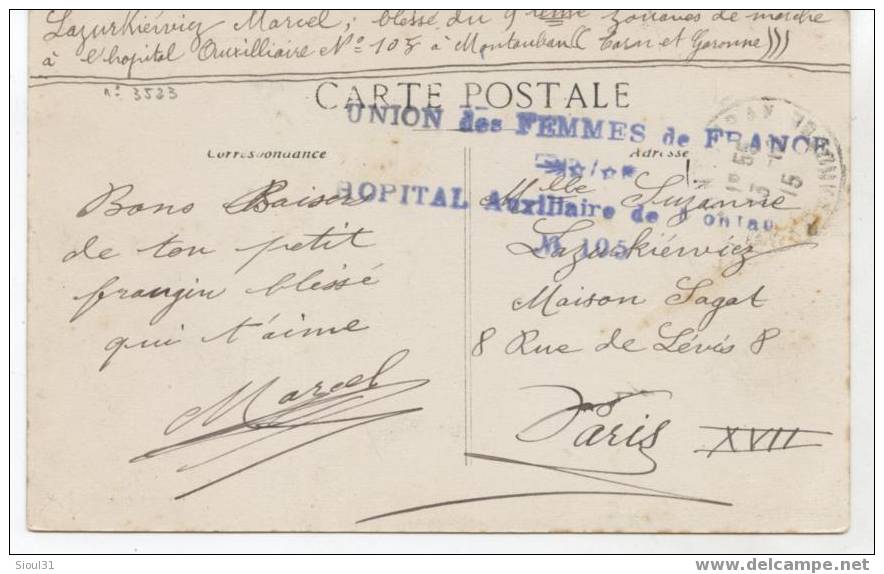 Lazurkiérvicz Marcel, blessé du 9ième zouaves de marche
à l'hopital Auxilliaire No 105 à Montauban (Tarn et Garonne)))
no 3523
CARTE POSTALE
UNION des FEMMES de FRANCE
Correspondance
Adresse
HOPITAL Auxiliaire de Montau
N 105
Bons Baisers
de ton petit
frangin blessé
qui t'aime
Marcel
Mlle Suzanne
Lazurkiérvicz
Maison Sagat
8 Rue de Lévis 8
Paris XVII
Sioul31
delcampe.net